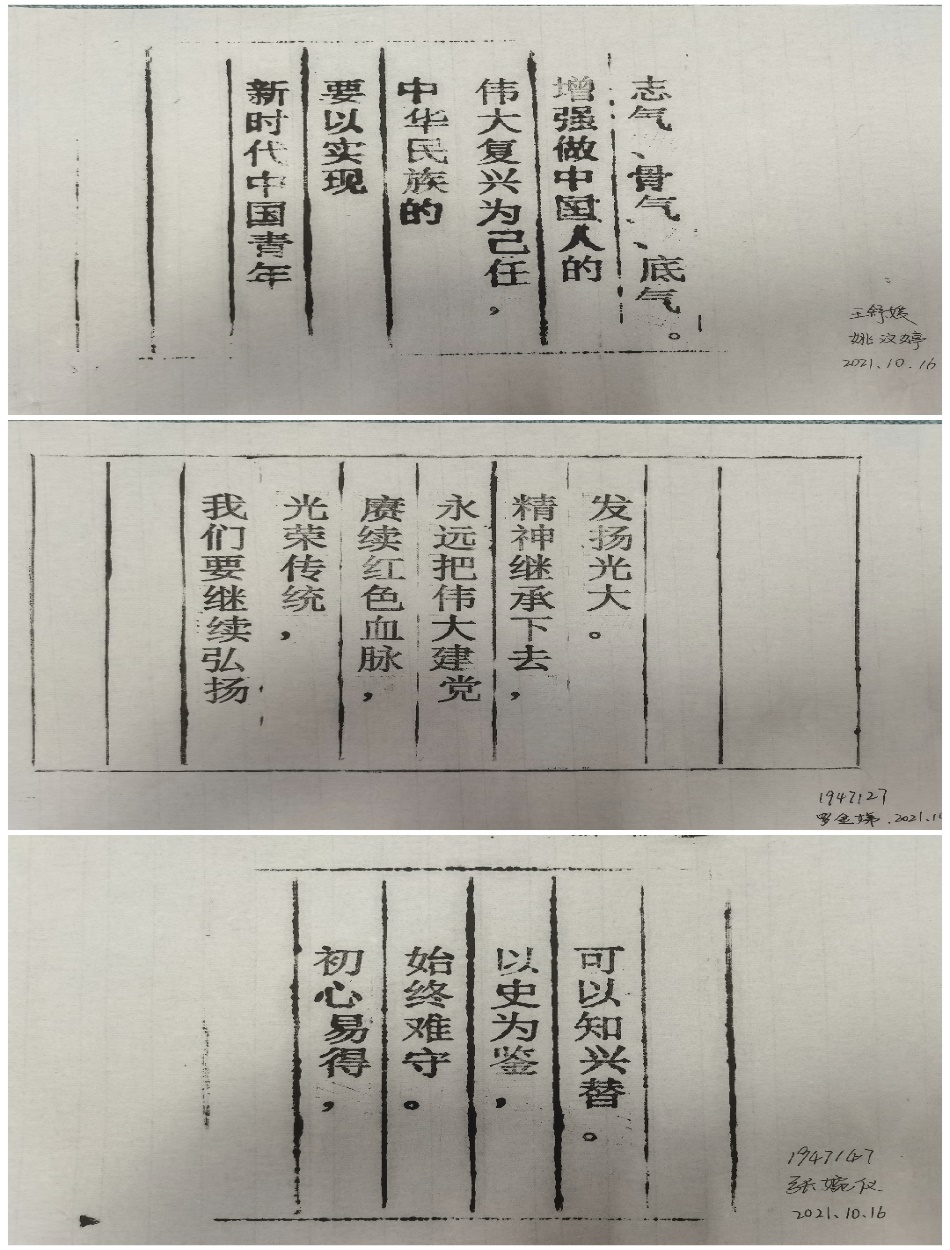 新时代中国青年
要以实现
中华民族的
伟大复兴为己任，
增强做中国人的
志气、骨气、底气。
姚汶婷
2021.10.16
我们要继续弘扬
光荣传统，
赓续红色血脉，
永远把伟大建党
精神继承下去，
发扬光大。
1947127
初心易得，
始终难守。
以史为鉴，
可以知兴替。
1947147
张婉仪
2021.10.16